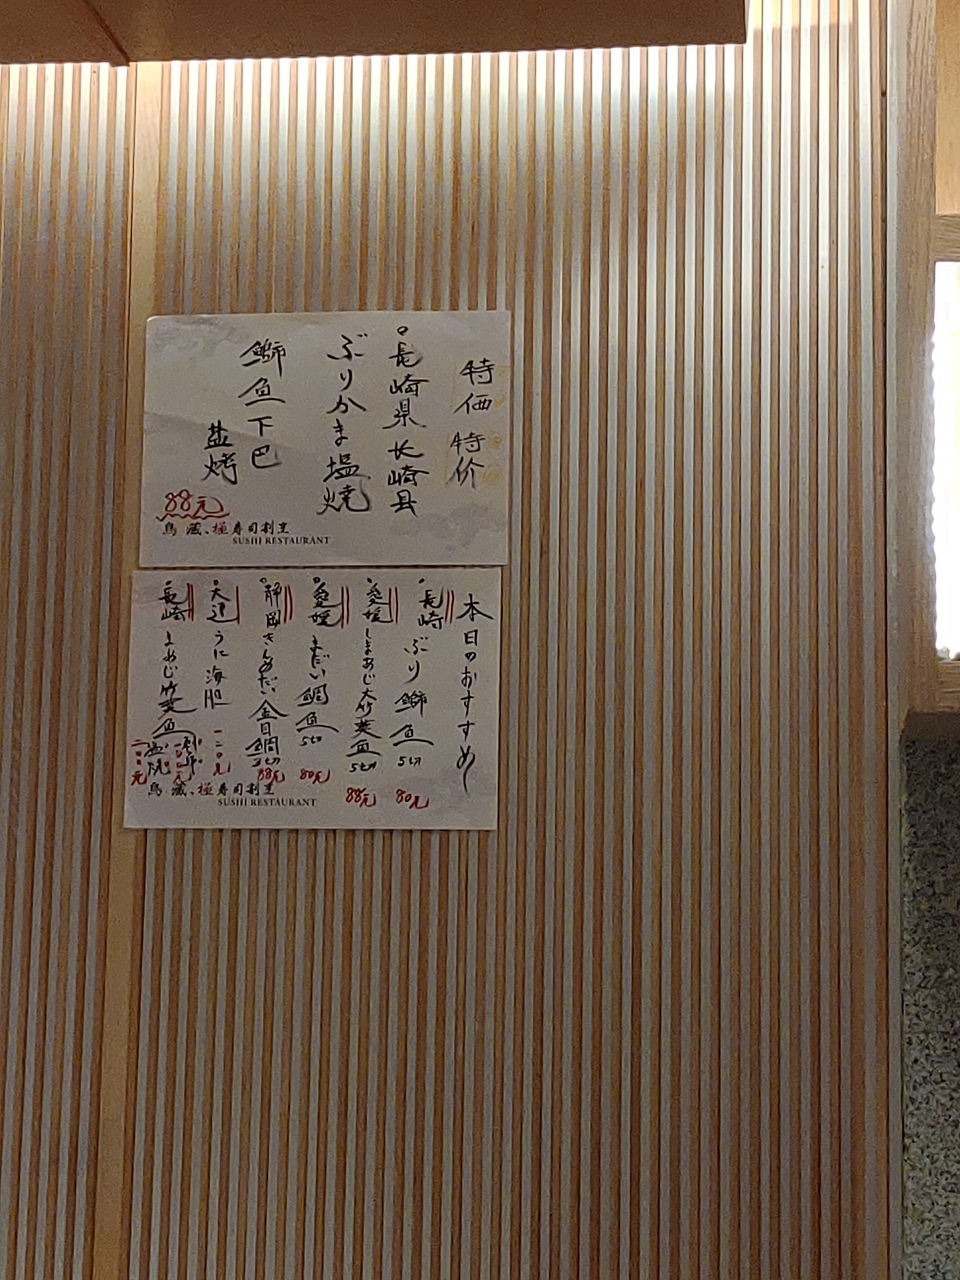 特価 特价
長崎県 长崎县
ぶりかま塩焼
鰤魚下巴
盐烤
88元
鳥 蔵、極寿司割烹
SUSHI RESTAURANT
本日のおすすめ
長崎 ぶり 鰤魚 5切 80元
愛媛 しまあじ 大竹莢魚 5切 88元
愛媛 まだい 鯛魚 5切 80元
静岡 きんめだい 金目鯛 3切 88元
大連 うに 海胆 一二〇元
長崎 まあじ 竹莢魚
塩焼
鳥 蔵、極寿司割烹
SUSHI RESTAURANT